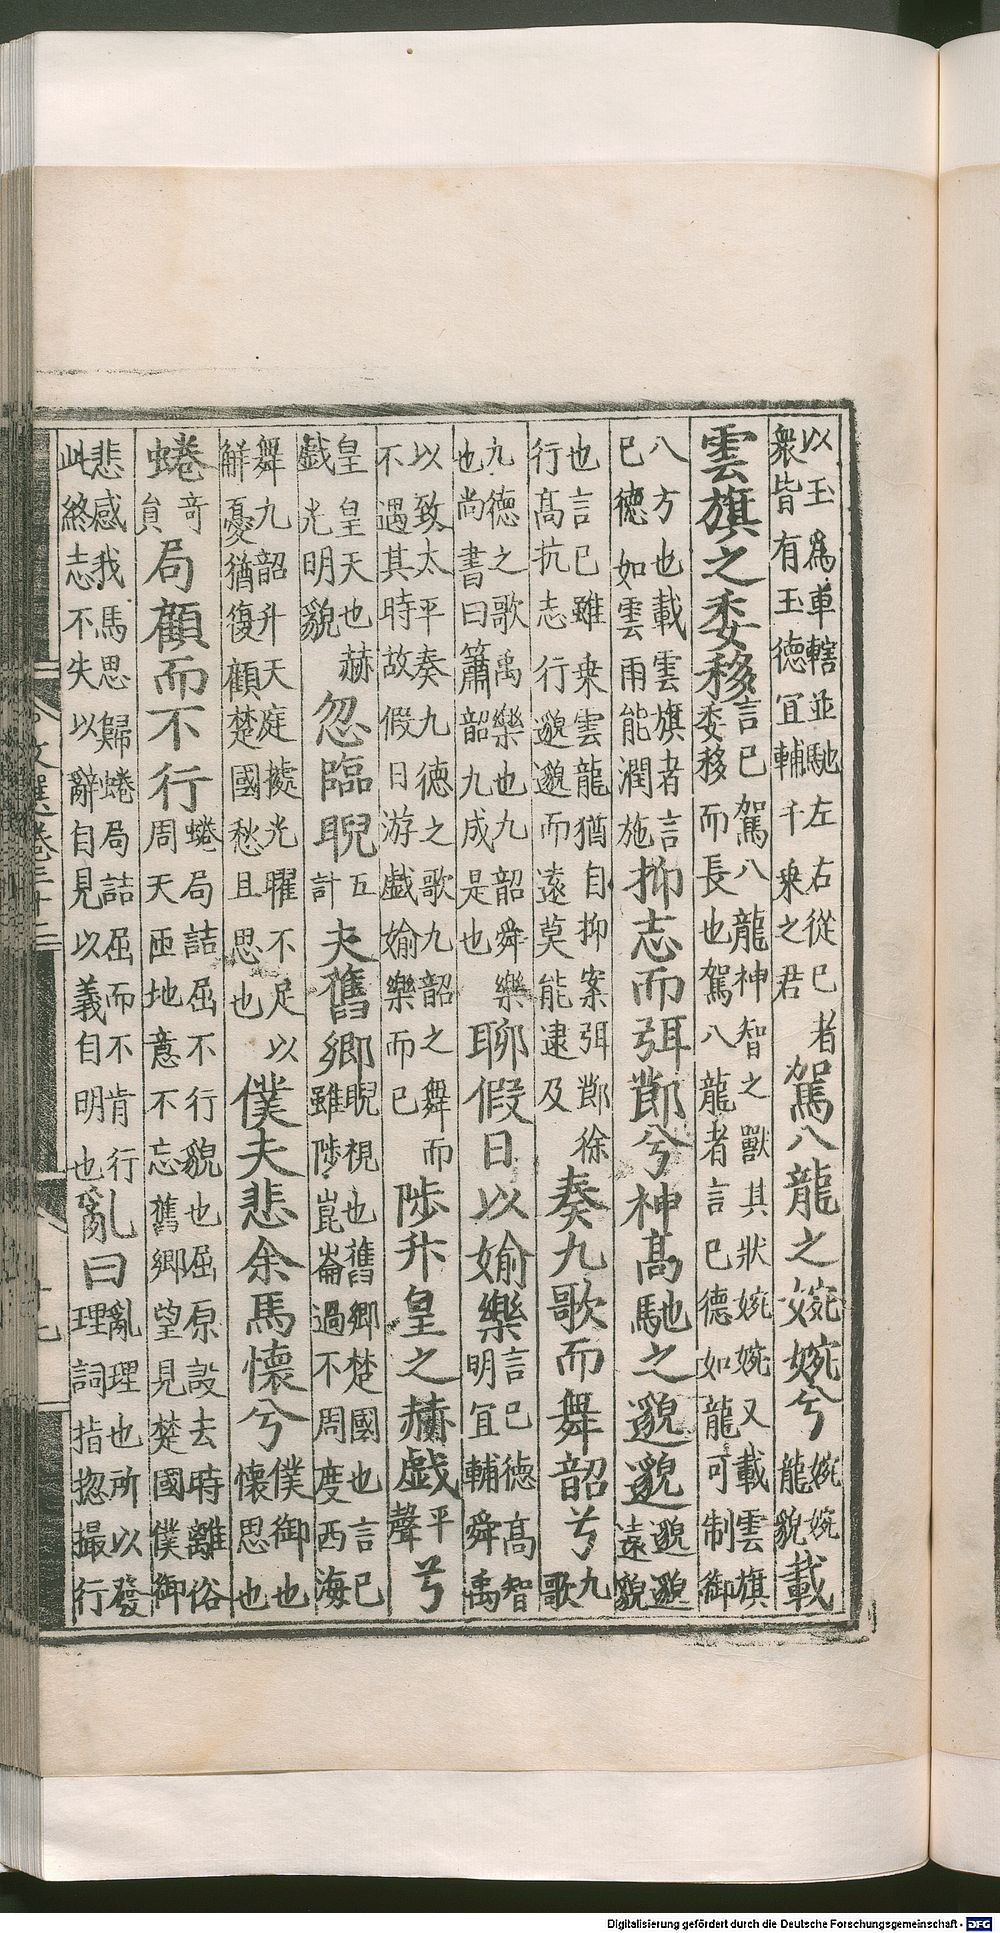 以玉爲車轄並馳左右從已者衆皆有玉德宜輔千乗之君駕八龍之婉婉兮婉婉龍貌載
雲旗之委移言已駕八龍神智之獸其狀婉婉又載雲旗委移而長也駕八龍者言已德如龍可制御
八方也載雲旗者言已德如雲雨能潤施抑志而弭節兮神髙馳之邈邈邈邈遠貌
也言已雖乗雲龍猶自抑案弭節徐行髙抗志行邈邈而遠莫能逮及奏九歌而舞韶兮九歌
九德之歌禹樂也九韶舜樂也尚書曰簫韶九成是也聊假日以婾樂言已德高智明宜輔舜禹
以致太平奏九徳之歌九韶之舞而不遇其時故假日游戲婾樂而已陟升皇之赫戲平聲兮
皇皇天也赫戲光明貌忽臨睨五計夫舊鄉睨視也舊鄉楚國也言已雖陟崑崙過不周度西海
舞九韶升天庭據光曜不足以解憂猶復顧楚國愁且思也僕夫悲余馬懷兮僕御也懷思也
蜷奇員局顧而不行蜷局詰屈不行貌也屈原設去時離俗周天匝地意不忘舊鄉望見楚國僕御
悲感我馬思歸蜷局詰屈而不肯行此終志不失以辭自見以義自明也亂曰亂理也所以發理詞指揔撮行
文選卷三十二
Digitalisierung gefördert durch die Deutsche Forschungsgemeinschaft - DFG